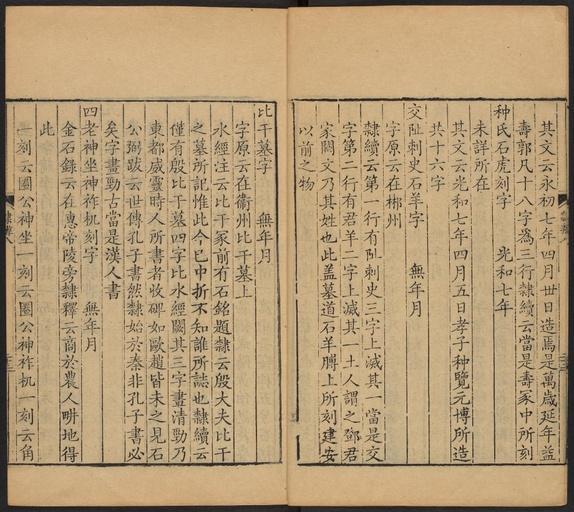 其文云永初七年四月卅日造焉是萬歲延年益
壽郭凡十八字為三行隸續云當是壽冢中所刻
种氏石虎刻字 光和七年
未詳所在
其文云光和七年四月五日孝子种覽元博所造
共十六字
交阯刺史石羊字 無年月
字原云在郴州
隸續云第一行有阯刺史三字上滅其一當是交
字第二行有君羊二字上滅其一土人謂之鄧君
家闕文乃其姓也此蓋墓道石羊膊上所刻建安
以前之物
比干墓字 無年月
字原云在衞州比干墓上
水經注云比干冢前有石銘題隸云殷大夫比干
之墓所記惟此今已中折不知誰所誌也隸續云
僅有殷比干墓四字比水經闕其三字畫清勁乃
東都威靈時人所書者收碑如歐趙皆未之見石
公弼跋云世傳孔子書然隸始於秦非孔子書必
矣字畫勁古當是漢人書
四老神坐神祚机刻字 無年月
金石錄云在惠帝陵旁隸釋云商於農人畊地得
此
一刻云圜公神坐一刻云圜公神祚机一刻云角
隸辨八